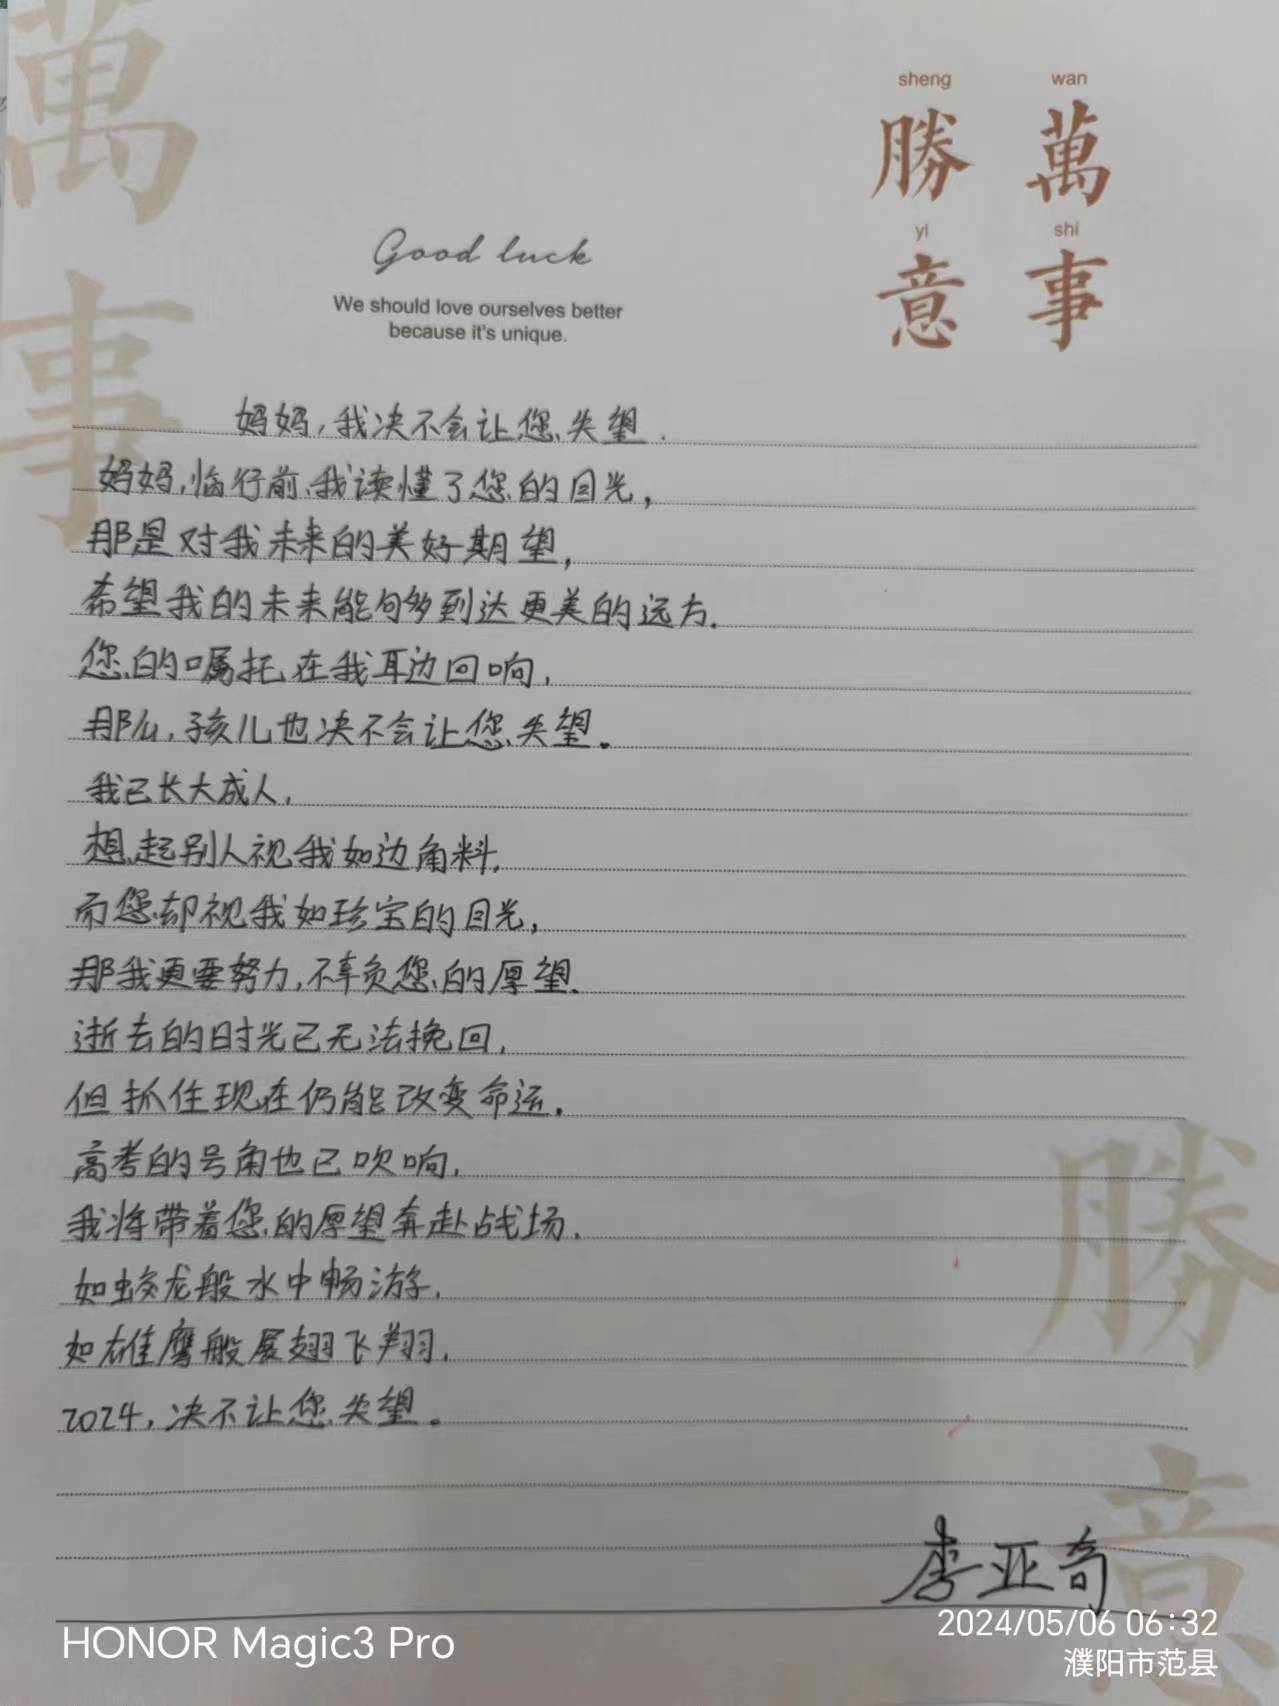 萬
事
sheng wan
勝 萬
yi shi
意 事
Good luck
We should love ourselves better
because it's unique.
妈妈,我决不会让您失望.
妈妈,临行前,我读懂了您的目光,
那是对我未来的美好期望,
希望我的未来能够到达更美的远方.
您的嘱托在我耳边回响,
那么,孩儿也决不会让您失望。
我已长大成人,
想起别人视我如边角料,
而您却视我如珍宝的目光,
那我更要努力,不辜负您的厚望.
逝去的时光已无法挽回,
但抓住现在仍能改变命运.
高考的号角也已吹响,
我将带着您的厚望奔赴战场.
如蛟龙般水中畅游,
如雄鹰般展翅飞翔.
2024,决不让您失望。
勝
意
李亚奇
HONOR Magic3 Pro
2024/05/06 06:32
濮阳市范县